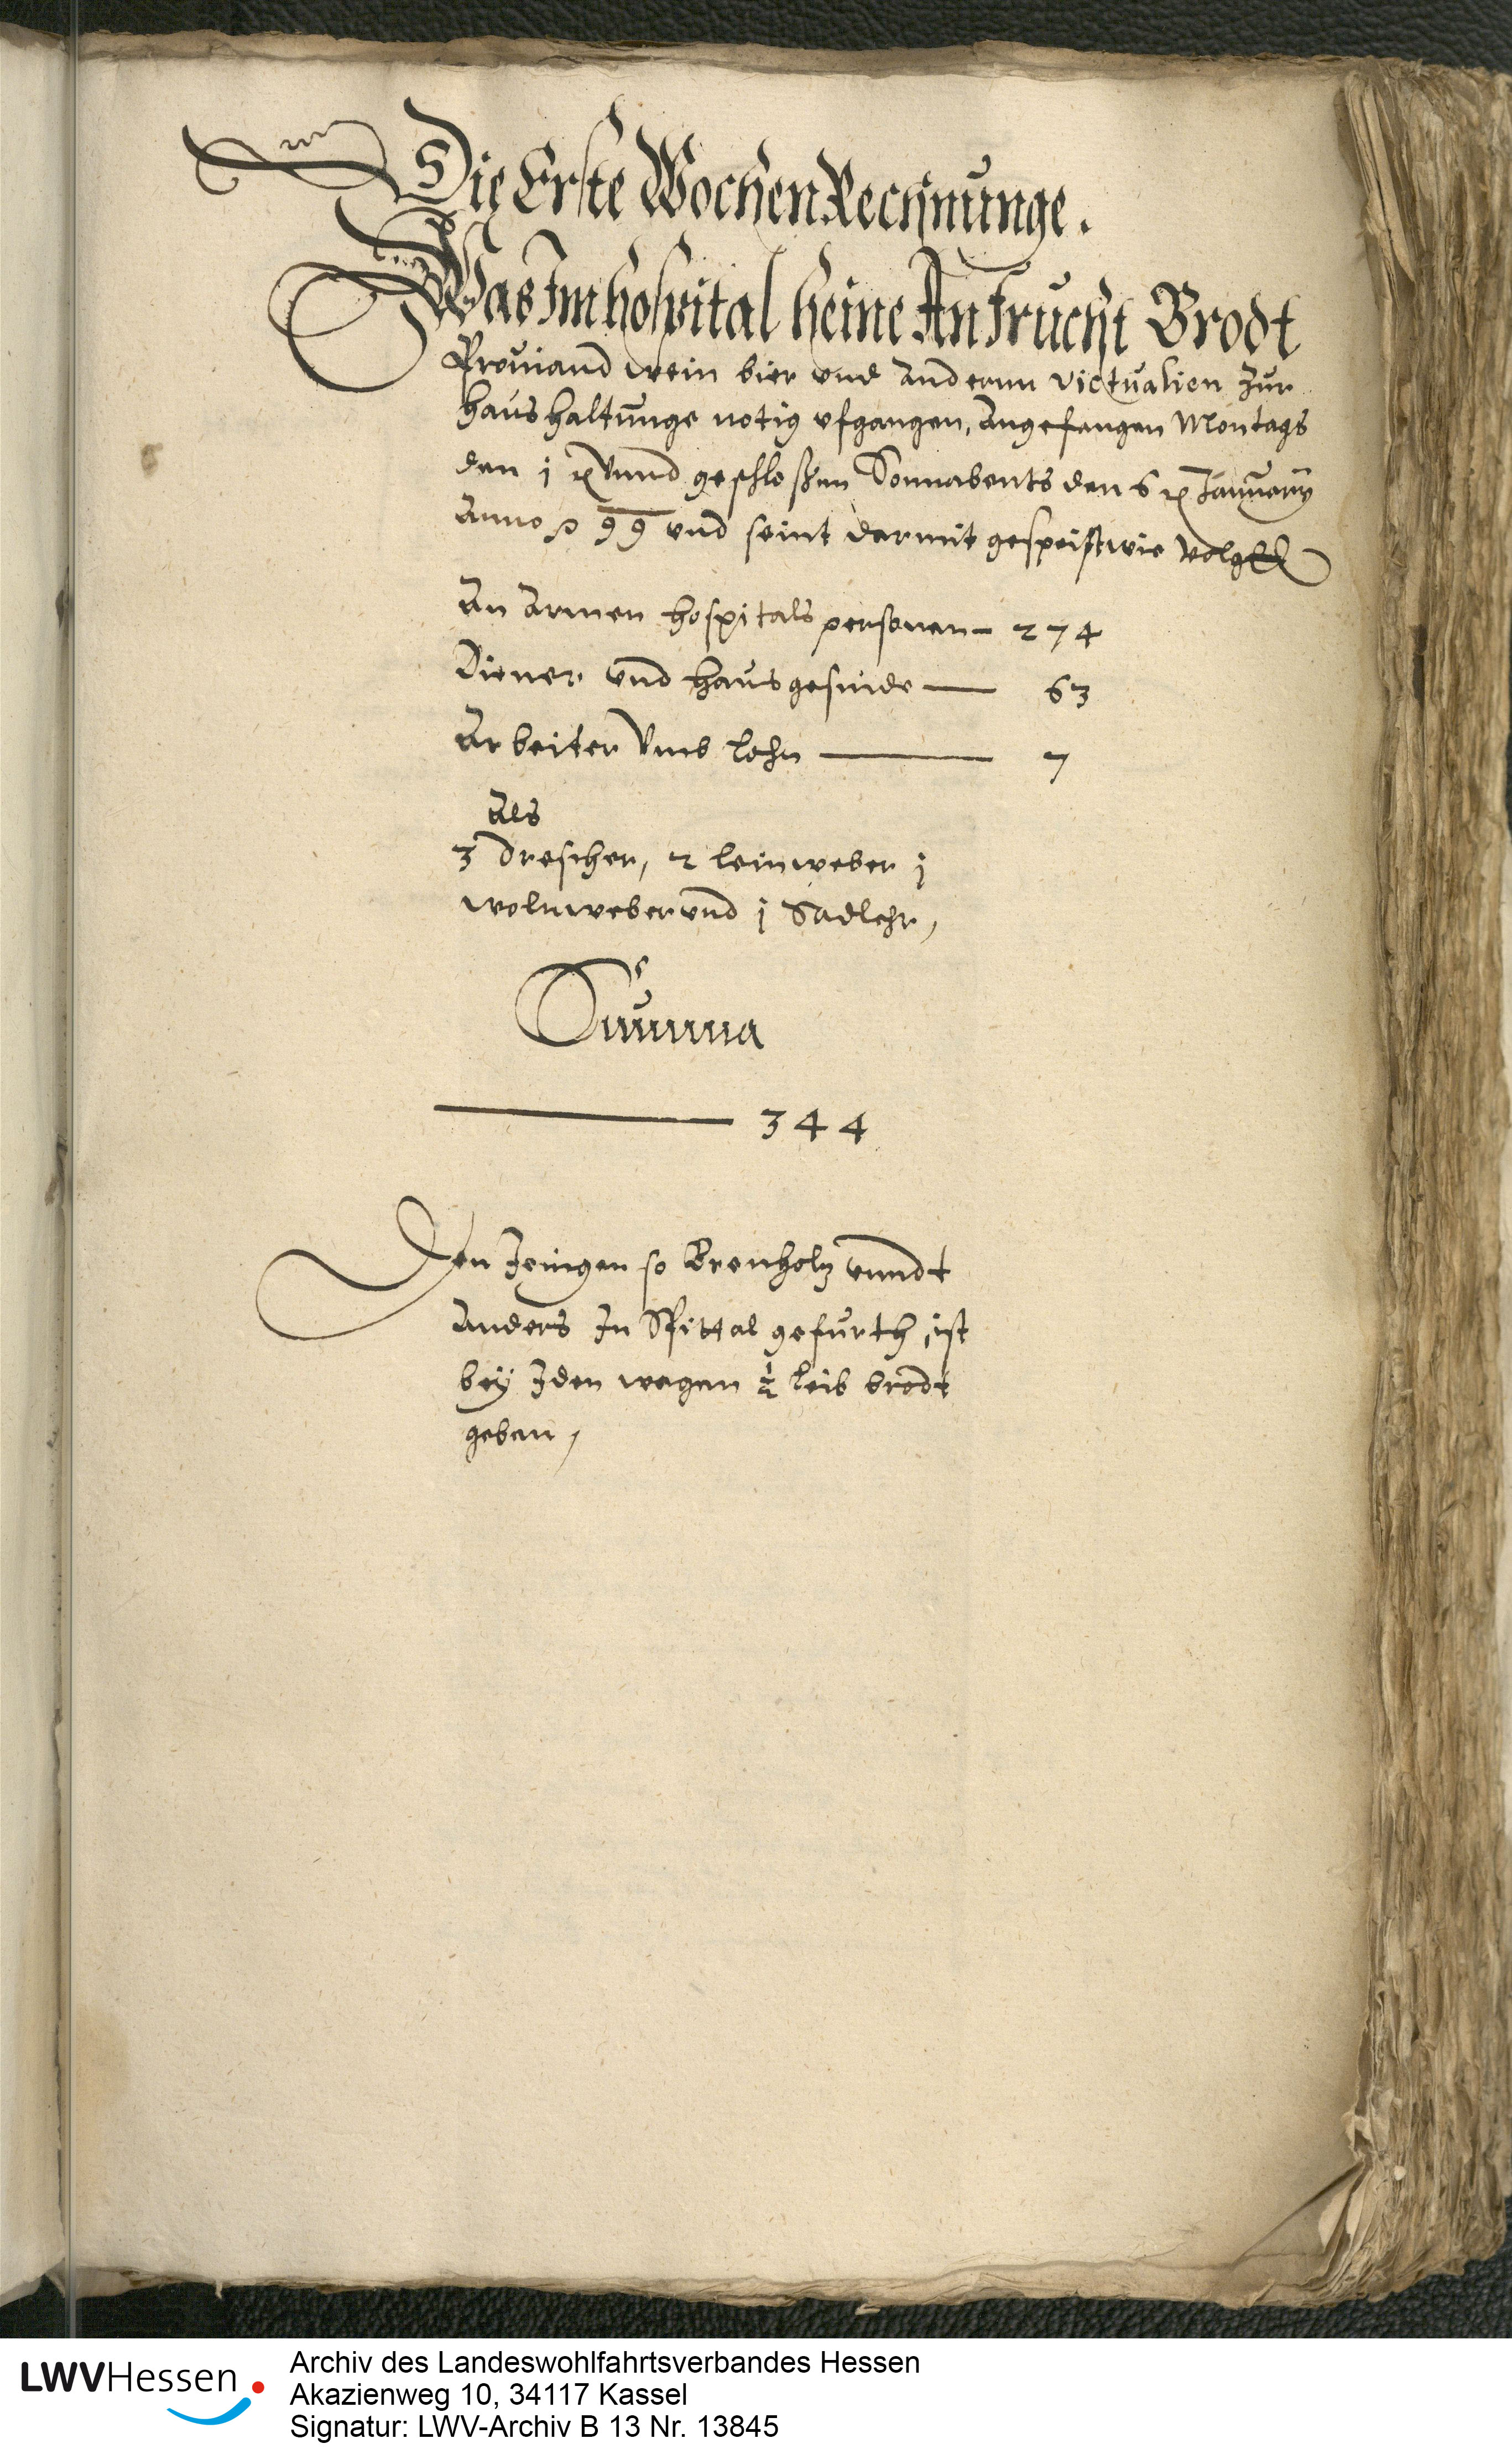 Die Erste Wochen Rechnunge.
Was Im hospital heine An frucht Brodt
Proviand wein bier und andernn victualien zur
haushaltunge notig ufgangen, angefangen Montags
den 1 unnd geschloßenn Sonnabents den 6 January
Anno 99 und seint darmit gespeist wie volgt
An Armen hospitals personen 274
Diener und hausgesinde 63
Arbeiter umb lohn 7
Als
3 drescher, 2 leinweber 1
wolnweber und 1 Sadlehr,
Summa
344
Den Jenigen so Brenholz unndt
anders In Spittal gefurth, ist
bey Iden wagen ½ leib brodt
geben,
LWVHessen
Archiv des Landeswohlfahrtsverbandes Hessen
Akazienweg 10, 34117 Kassel
Signatur: LWV-Archiv B 13 Nr. 13845